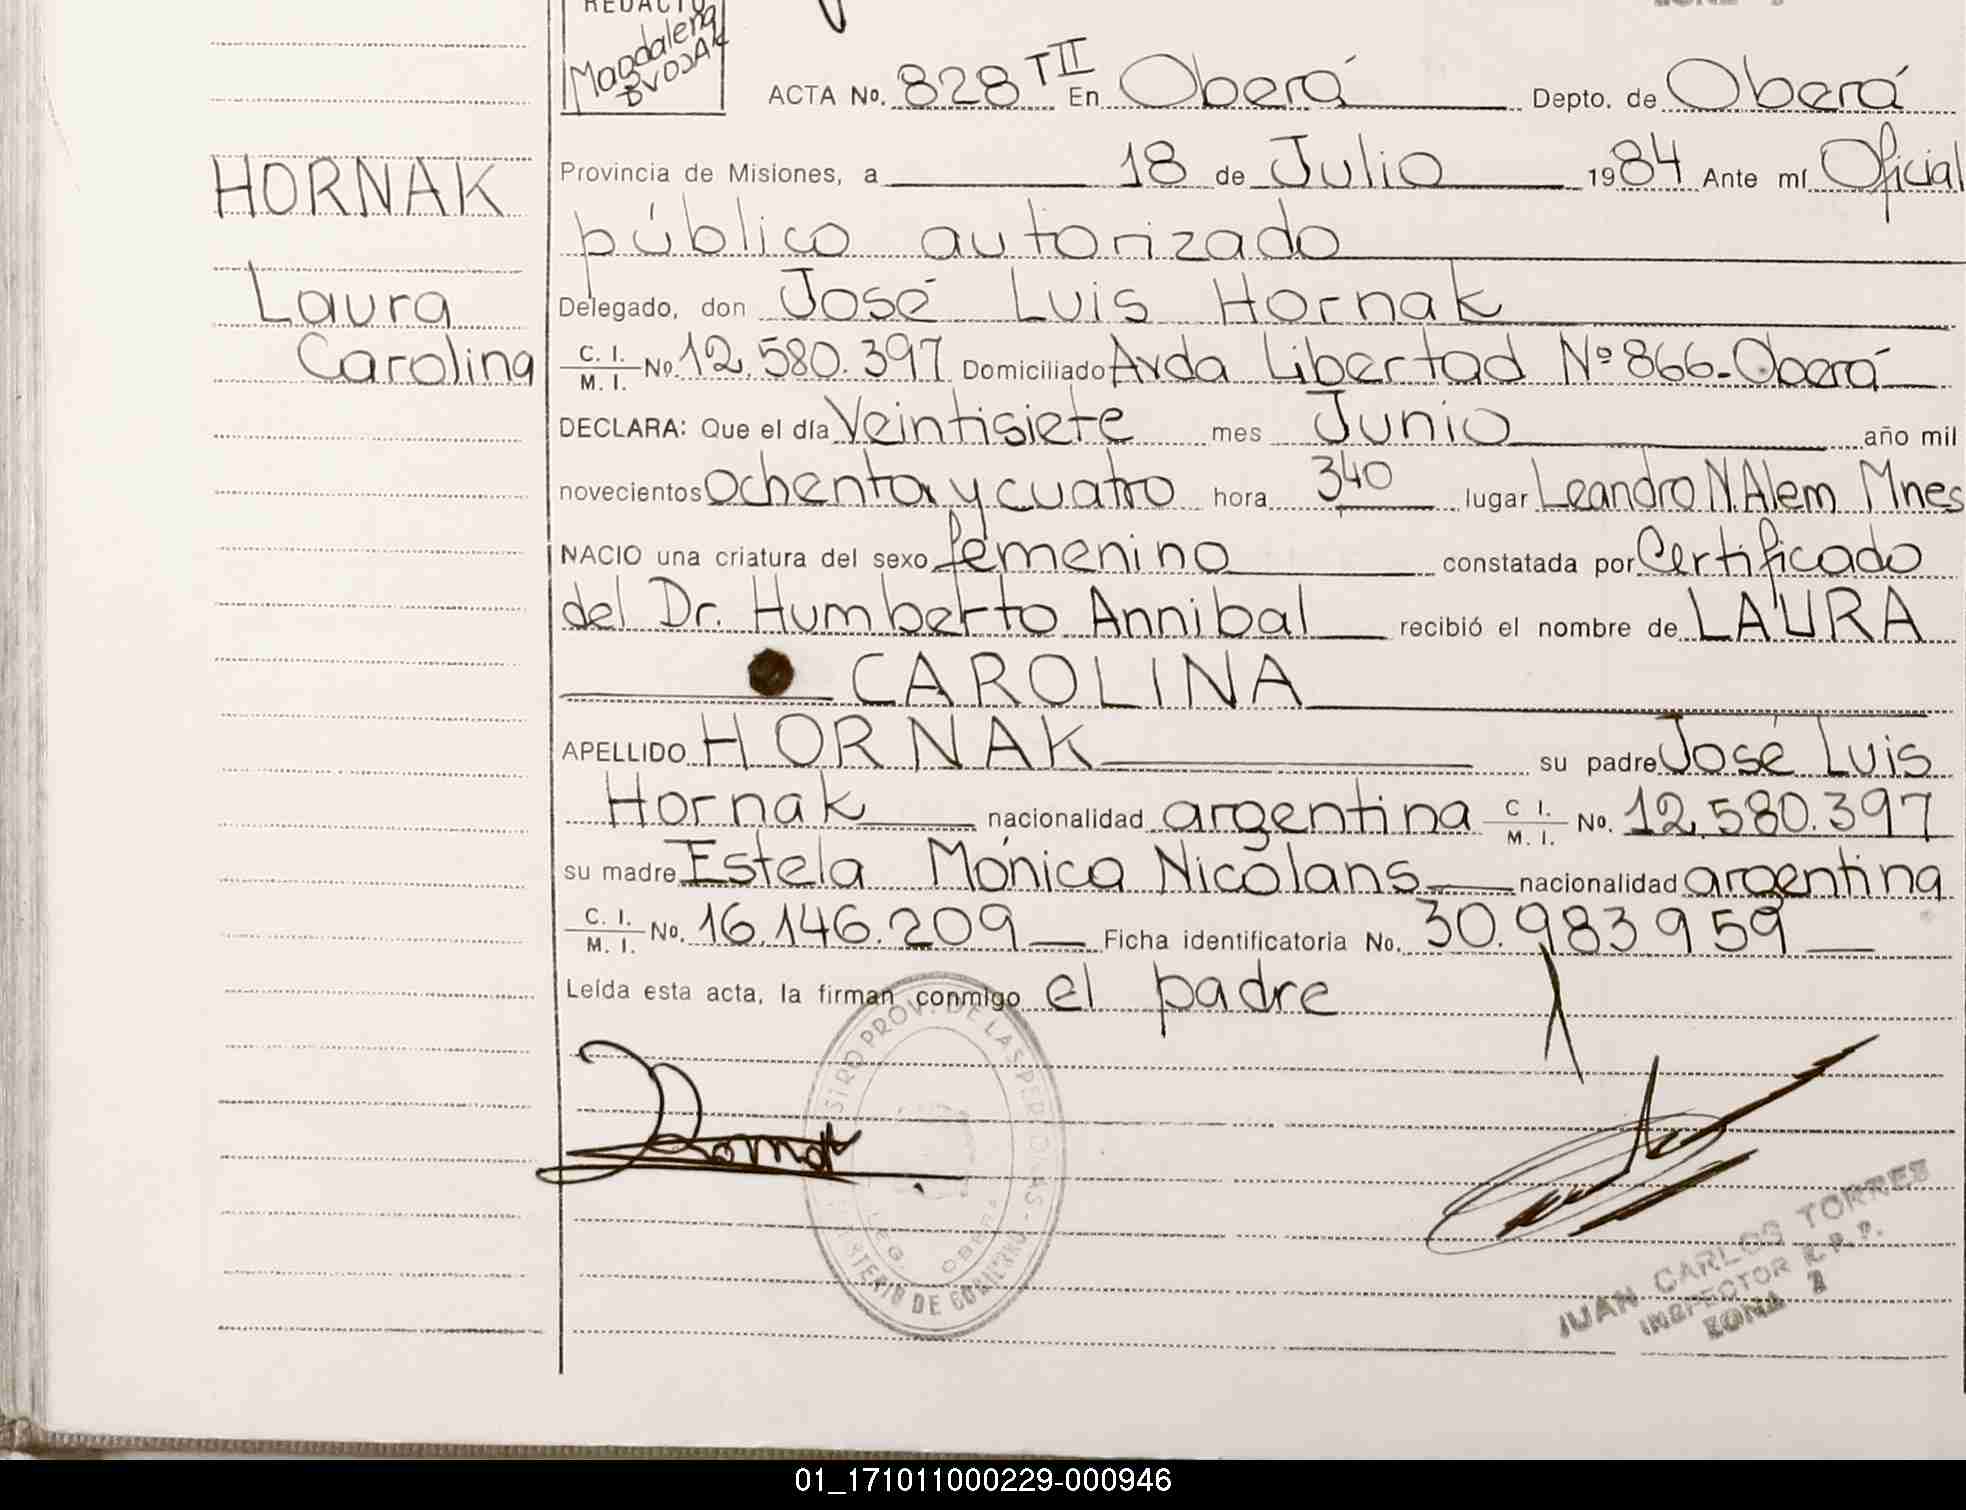 REDACTO
Magdalena
BVDJAK
ACTA No. 828 TII En Oberá Depto. de Oberá
HORNAK
Laura
Carolina
Provincia de Misiones, a 18 de Julio 1984 Ante mí Oficial
público autorizado
Delegado, don José Luis Hornak
C. I. / M. I. No. 12.580.397 Domiciliado Avda Libertad Nº 866-Oberá
DECLARA: Que el día Veintisiete mes Junio año mil
novecientos ochenta y cuatro hora 340 lugar Leandro N. Alem Mnes
NACIO una criatura del sexo femenino constatada por Certificado
del Dr. Humberto Annibal recibió el nombre de LAURA
CAROLINA
APELLIDO HORNAK su padre José Luis
Hornak nacionalidad argentina C. I. / M. I. No. 12.580.397
su madre Estela Mónica Nicolans nacionalidad argentina
C. I. / M. I. No. 16.146.209 Ficha identificatoria No. 30.983959
Leída esta acta, la firman conmigo el padre
PROV. DE LAS PERSONAS
MINISTERIO DE GOBIERNO
OBERA
JUAN CARLOS TORRES
INSPECTOR R.P.P.
ZONA 2
01_171011000229-000946